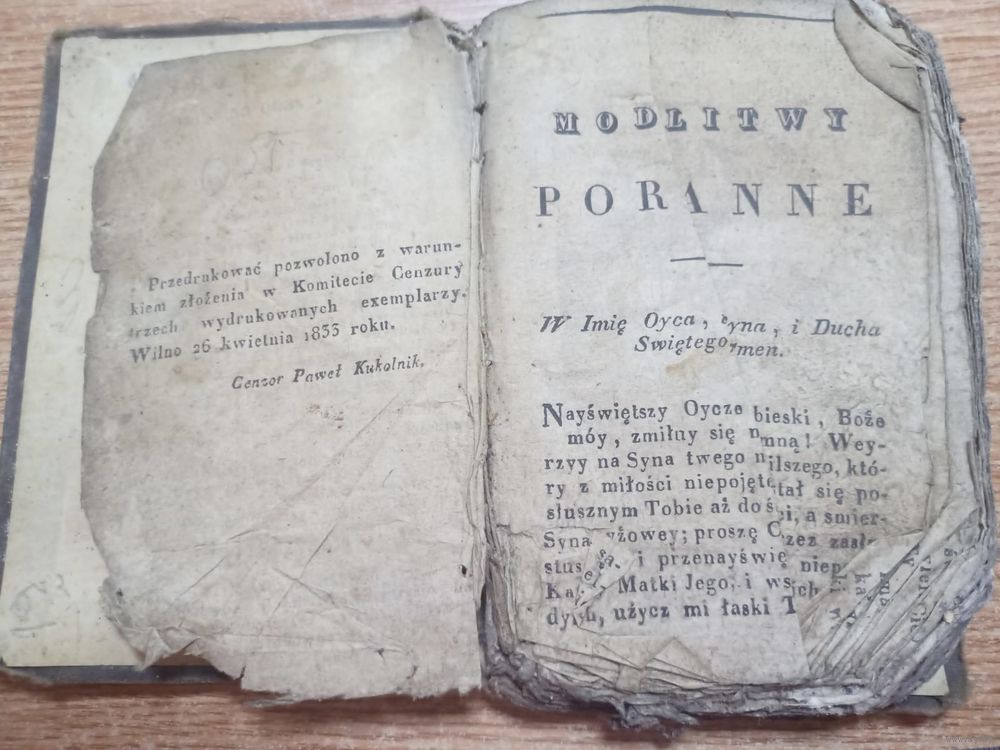 Przedrukować pozwolono z warun-
kiem złożenia w Komitecie Cenzury
trzech wydrukowanych exemplarzy.
Wilno 26 kwietnia 1833 roku.
Cenzor Paweł Kukolnik.
MODLITWY
PORANNE
W Imię Oyca, yna, i Ducha
Swiętego, men.
Nayświętszy Oycze bieski, Boże
móy, zmiłuy się mną! Wey-
rzyy na Syna twego ilszego, któ-
ry z miłości niepojęte tał się po-
słusznym Tobie aż do ś i, a smier-
Syna yżowey; proszę zez
i przenayświę niep
Matki Jego, i ws ich
użycz mi łaski T